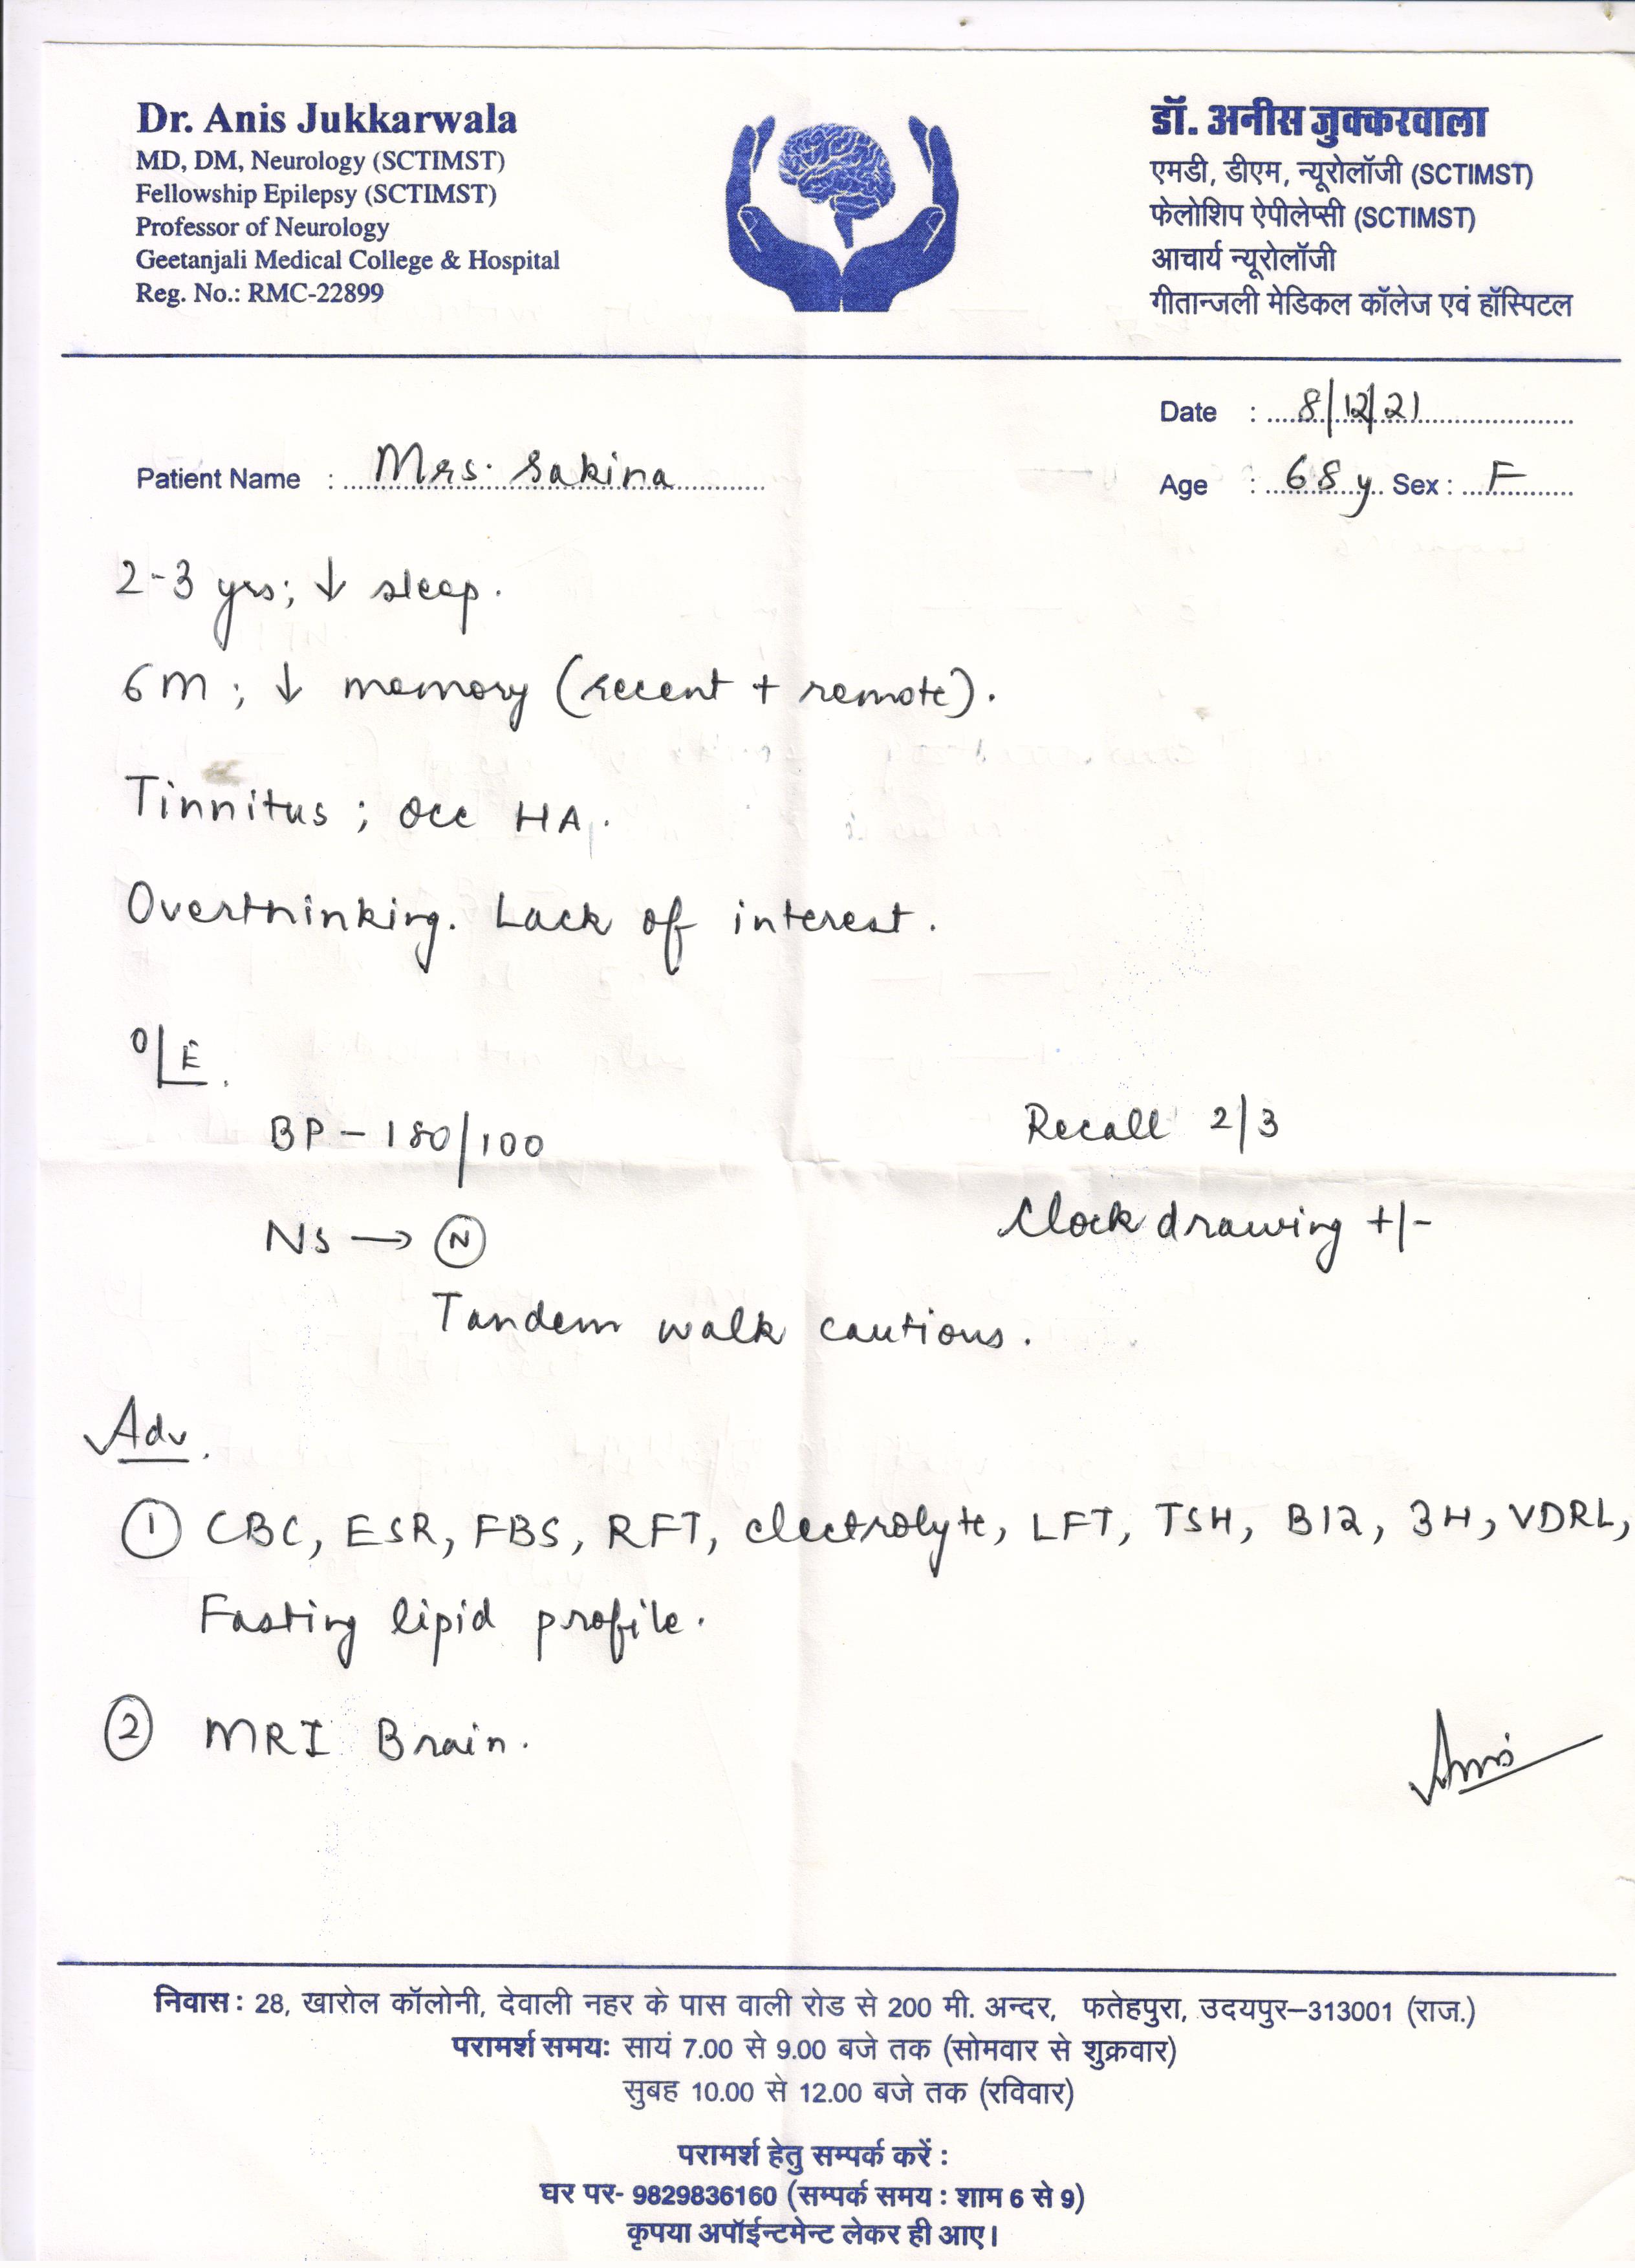 Dr. Anis Jukkarwala
MD, DM, Neurology (SCTIMST)
Fellowship Epilepsy (SCTIMST)
Professor of Neurology
Geetanjali Medical College & Hospital
Reg. No.: RMC-22899
डॉ. अनीस जुक्करवाला
एमडी, डीएम, न्यूरोलॉजी (SCTIMST)
फेलोशिप ऐपीलेप्सी (SCTIMST)
आचार्य न्यूरोलॉजी
गीतान्जली मेडिकल कॉलेज एवं हॉस्पिटल
Date : 8/12/21
Patient Name : Mrs. Sakina
Age : 68 y Sex : F
2-3 yrs; ↓ sleep.
6m; ↓ memory (recent + remote).
Tinnitus ; occ HA.
Overthinking. Lack of interest.
O/E.
BP - 180/100
Recall 2/3
NS → N
Clock drawing +/-
Tandem walk cautious.
Adv.
1 CBC, ESR, FBS, RFT, electrolyte, LFT, TSH, B12, 3H, VDRL,
Fasting lipid profile.
2 MRI Brain.
Anis
निवास : 28, खारोल कॉलोनी, देवाली नहर के पास वाली रोड से 200 मी. अन्दर, फतेहपुरा, उदयपुर–313001 (राज.)
परामर्श समय: सायं 7.00 से 9.00 बजे तक (सोमवार से शुक्रवार)
सुबह 10.00 से 12.00 बजे तक (रविवार)
परामर्श हेतु सम्पर्क करें :
घर पर- 9829836160 (सम्पर्क समय : शाम 6 से 9)
कृपया अपॉईन्टमेन्ट लेकर ही आए।